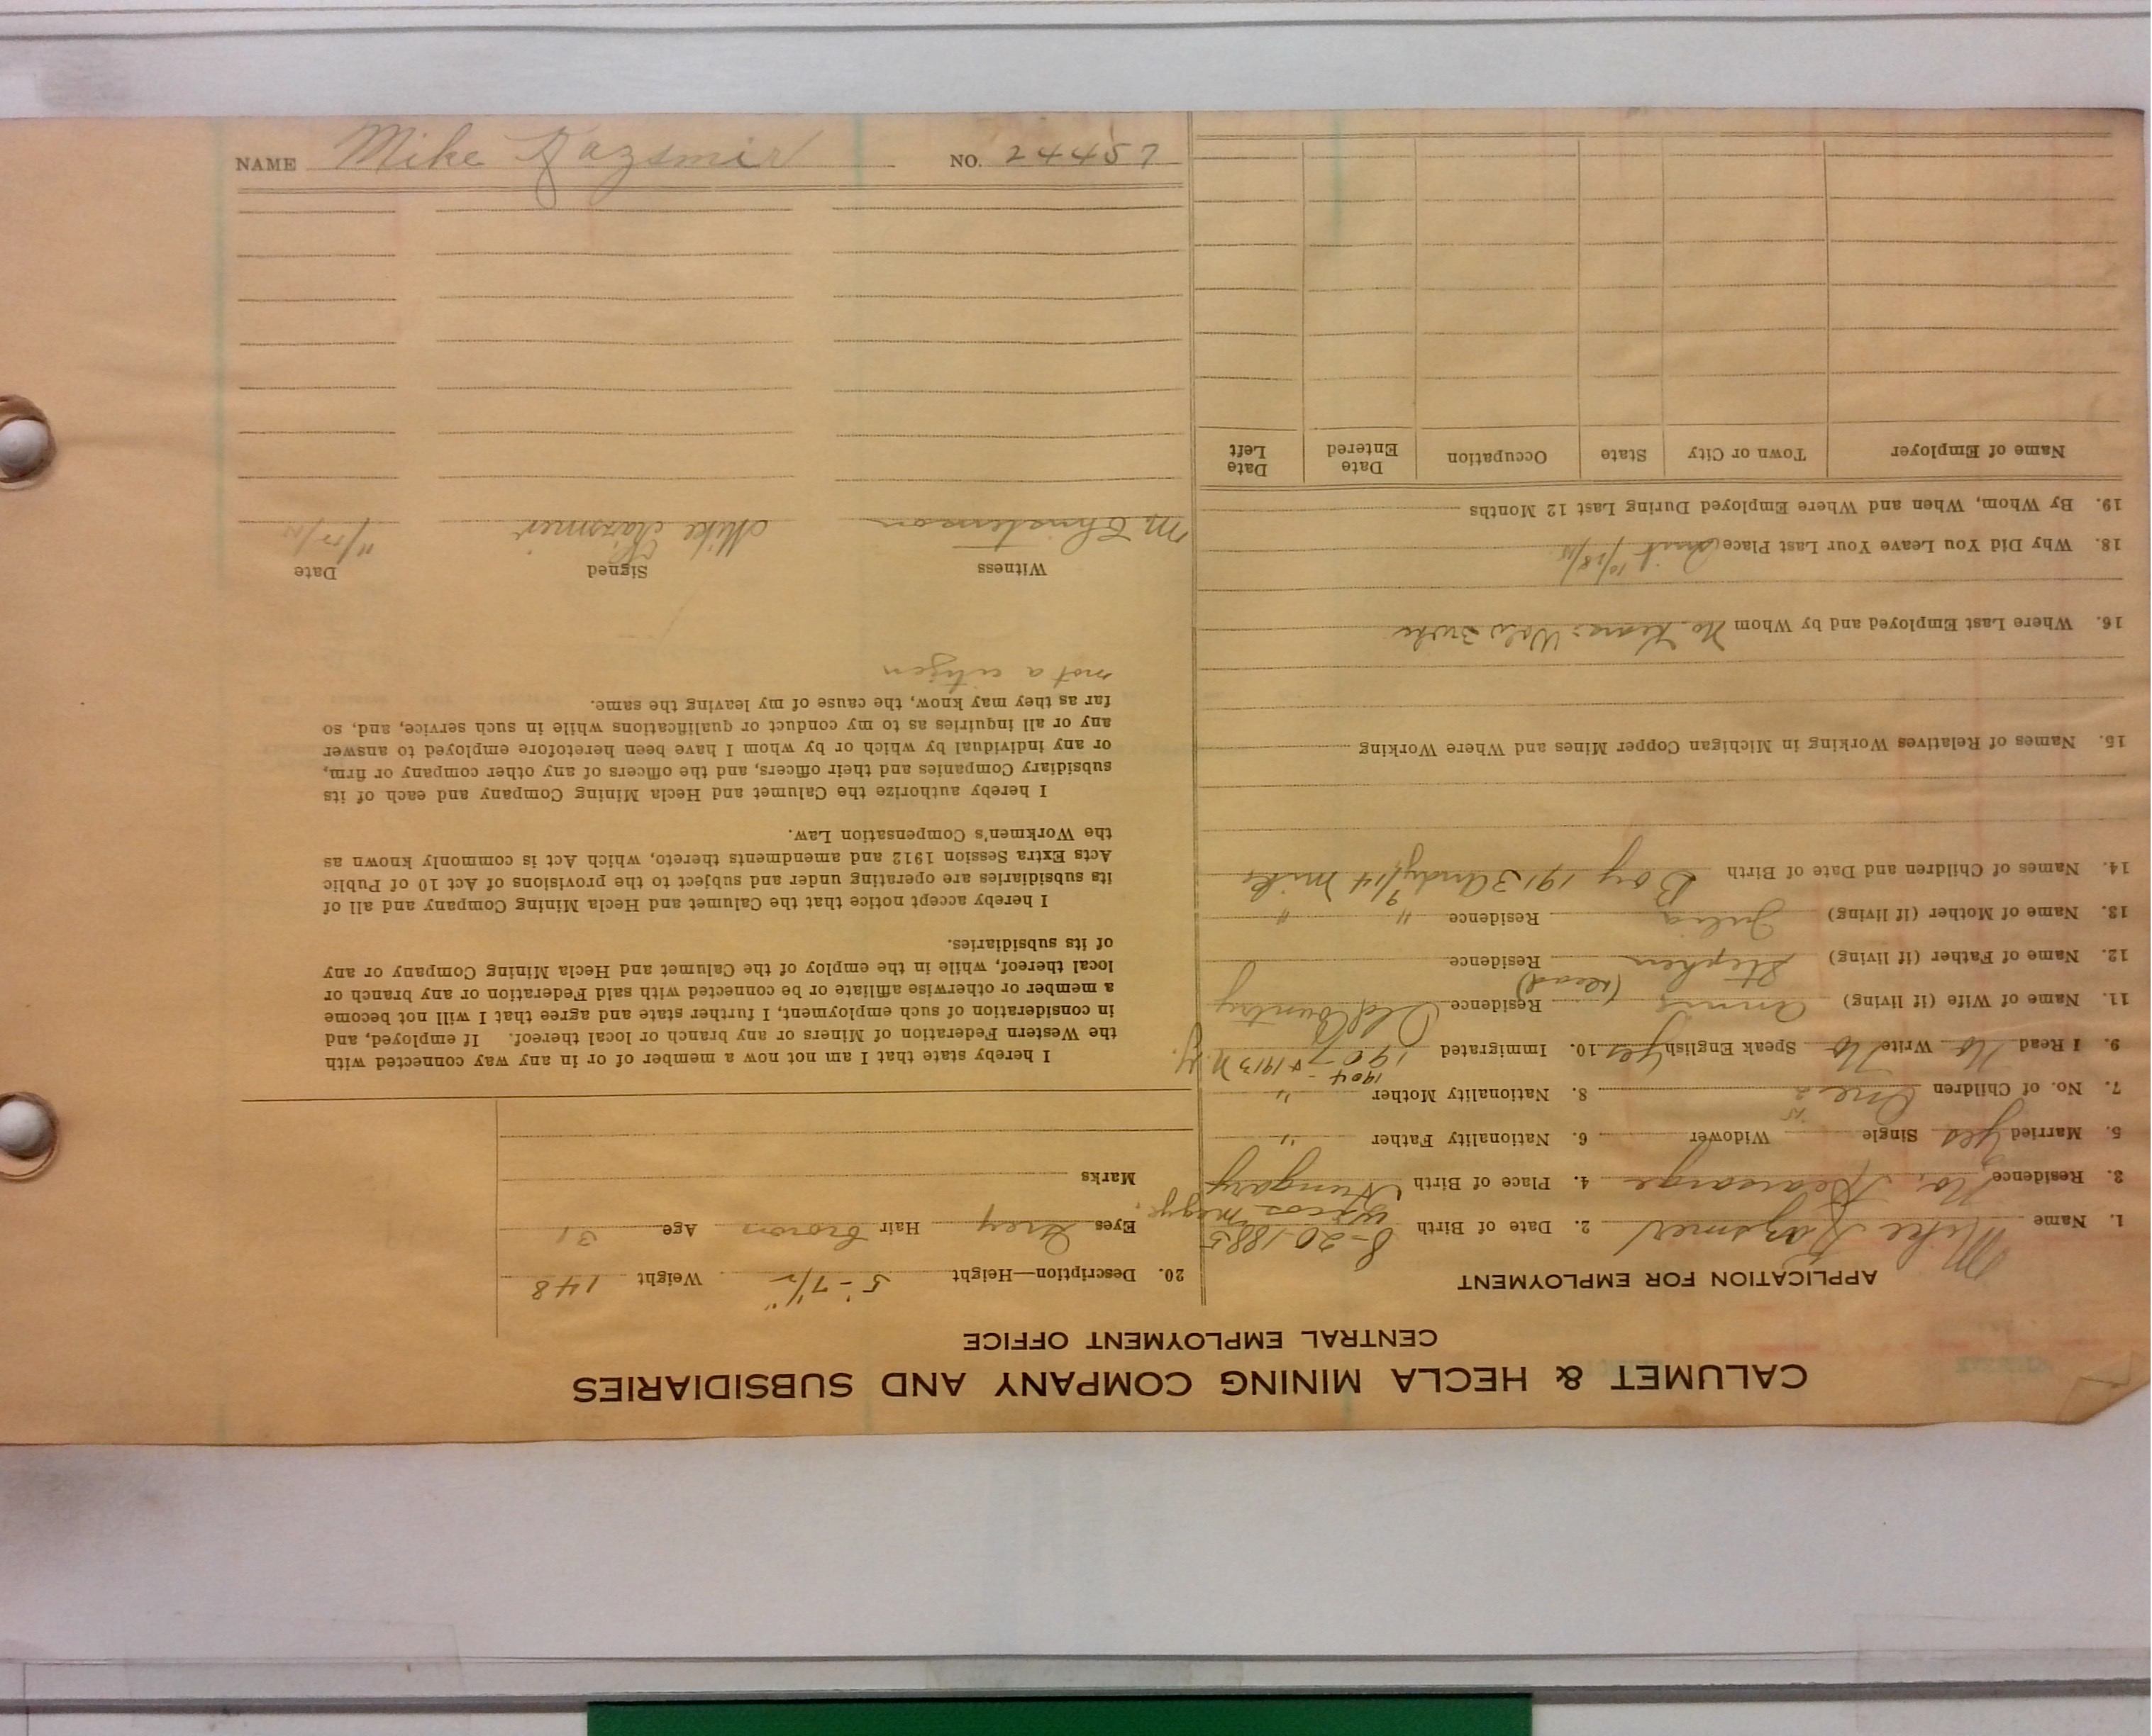 CALUMET & HECLA MINING COMPANY AND SUBSIDIARIES
CENTRAL EMPLOYMENT OFFICE
APPLICATION FOR EMPLOYMENT
1. Name Mike Kazsmer 2. Date of Birth 8-20-1885
3. Residence No. Kearsarge 4. Place of Birth Hungary
5. Married Yes Single Widower 6. Nationality Father "
7. No. of Children One 2 8. Nationality Mother "
1904 - 
9. I Read No Write No Speak English Yes 10. Immigrated 1907 & 1913 N.Y.
11. Name of Wife (if living) Annie Residence Old Country
12. Name of Father (if living) Stephen (dead) Residence
13. Name of Mother (if living) Julia Residence " "
14. Names of Children and Date of Birth Boy 1913 Andy 9/14 Mike
15. Names of Relatives Working in Michigan Copper Mines and Where Working
16. Where Last Employed and by Whom No. Kears.
18. Why Did You Leave Your Last Place Quit
19. By Whom, When and Where Employed During Last 12 Months
Name of Employer Town or City State Occupation Date Entered Date Left
20. Description—Height 5'-7 1/2" Weight 148
Eyes Grey Hair brown Age 31
Marks
I hereby state that I am not now a member of or in any way connected with
the Western Federation of Miners or any branch or local thereof. If employed, and
in consideration of such employment, I further state and agree that I will not become
a member or otherwise affiliate or be connected with said Federation or any branch or
local thereof, while in the employ of the Calumet and Hecla Mining Company or any
of its subsidiaries.
I hereby accept notice that the Calumet and Hecla Mining Company and all of
its subsidiaries are operating under and subject to the provisions of Act 10 of Public
Acts Extra Session 1912 and amendments thereto, which Act is commonly known as
the Workmen's Compensation Law.
I hereby authorize the Calumet and Hecla Mining Company and each of its
subsidiary Companies and their officers, and the officers of any other company or firm,
or any individual by which or by whom I have been heretofore employed to answer
any or all inquiries as to my conduct or qualifications while in such service, and, so
far as they may know, the cause of my leaving the same.
not a citizen
Witness Signed Date
M Christenson Mike Kazsmer
NAME Mike Kazsmir NO. 24457